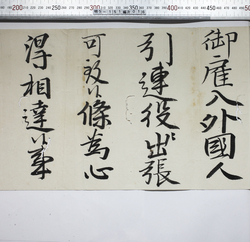 200 250 300 350 400 450
御雇入外國人
引連役々出張
可致候條為心
得相達候事